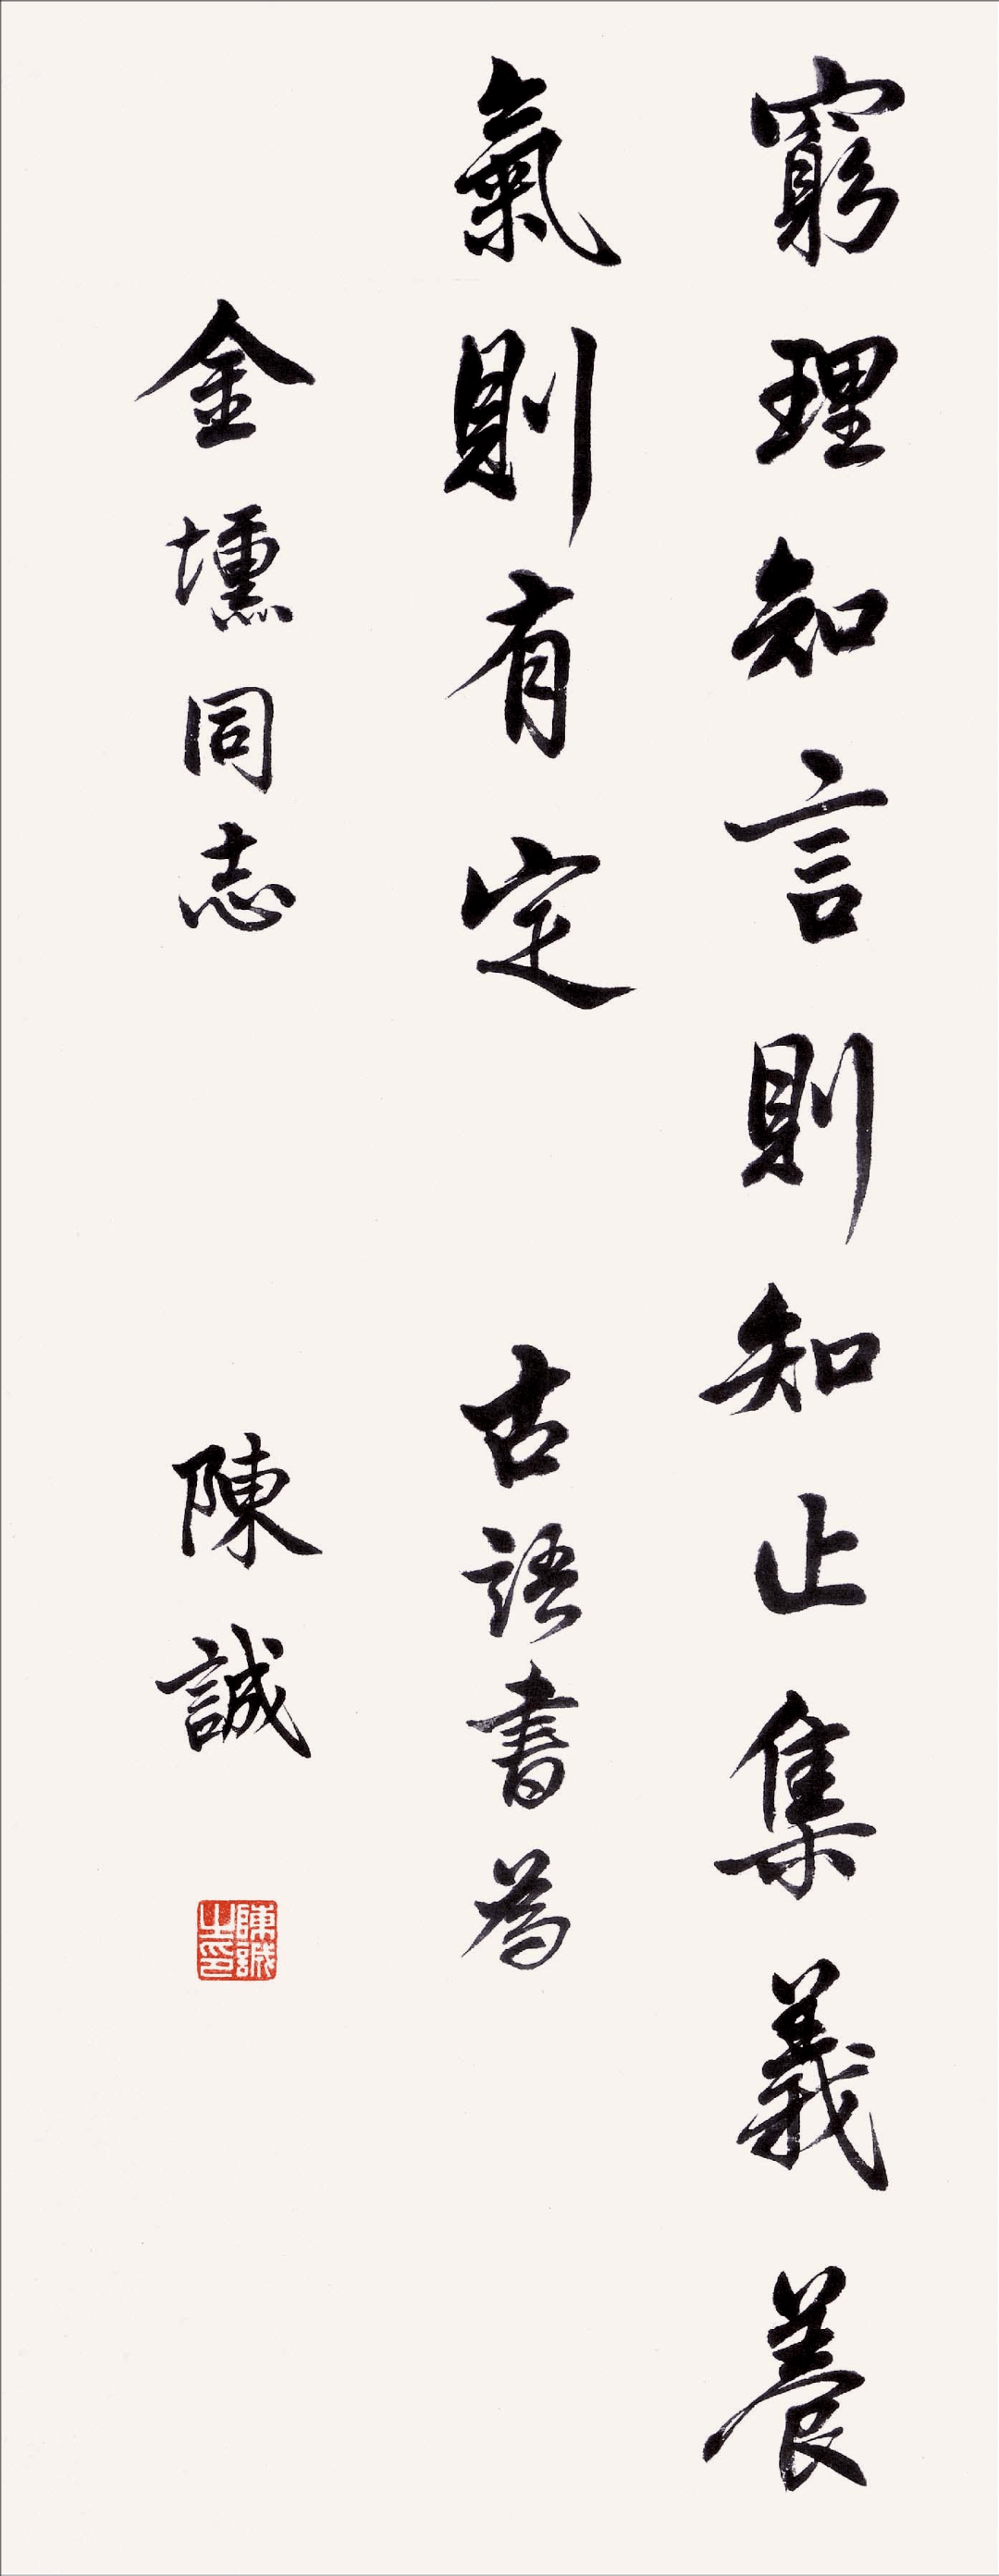 窮理知言則知止集義養
氣則有定
古語書為
金壎同志
陳誠
陳誠之印